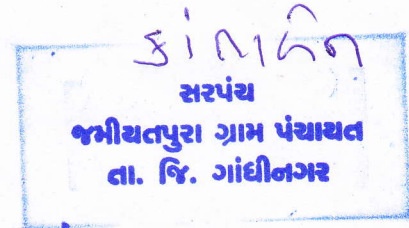 સરપંચ
જમીયતપુરા ગ્રામ પંચાયત
તા. જિ. ગાંધીનગર